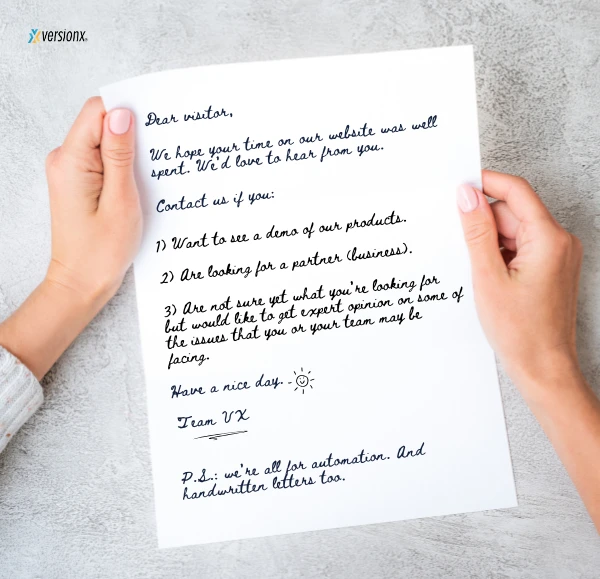 versionx
Dear visitor,
We hope your time on our website was well
spent. We'd love to hear from you.
Contact us if you:
1) Want to see a demo of our products.
2) Are looking for a partner (business).
3) Are not sure yet what you're looking for
but would like to get expert opinion on some of
the issues that you or your team may be
facing.
Have a nice day.
Team VX
P.S.: we're all for automation. And
handwritten letters too.